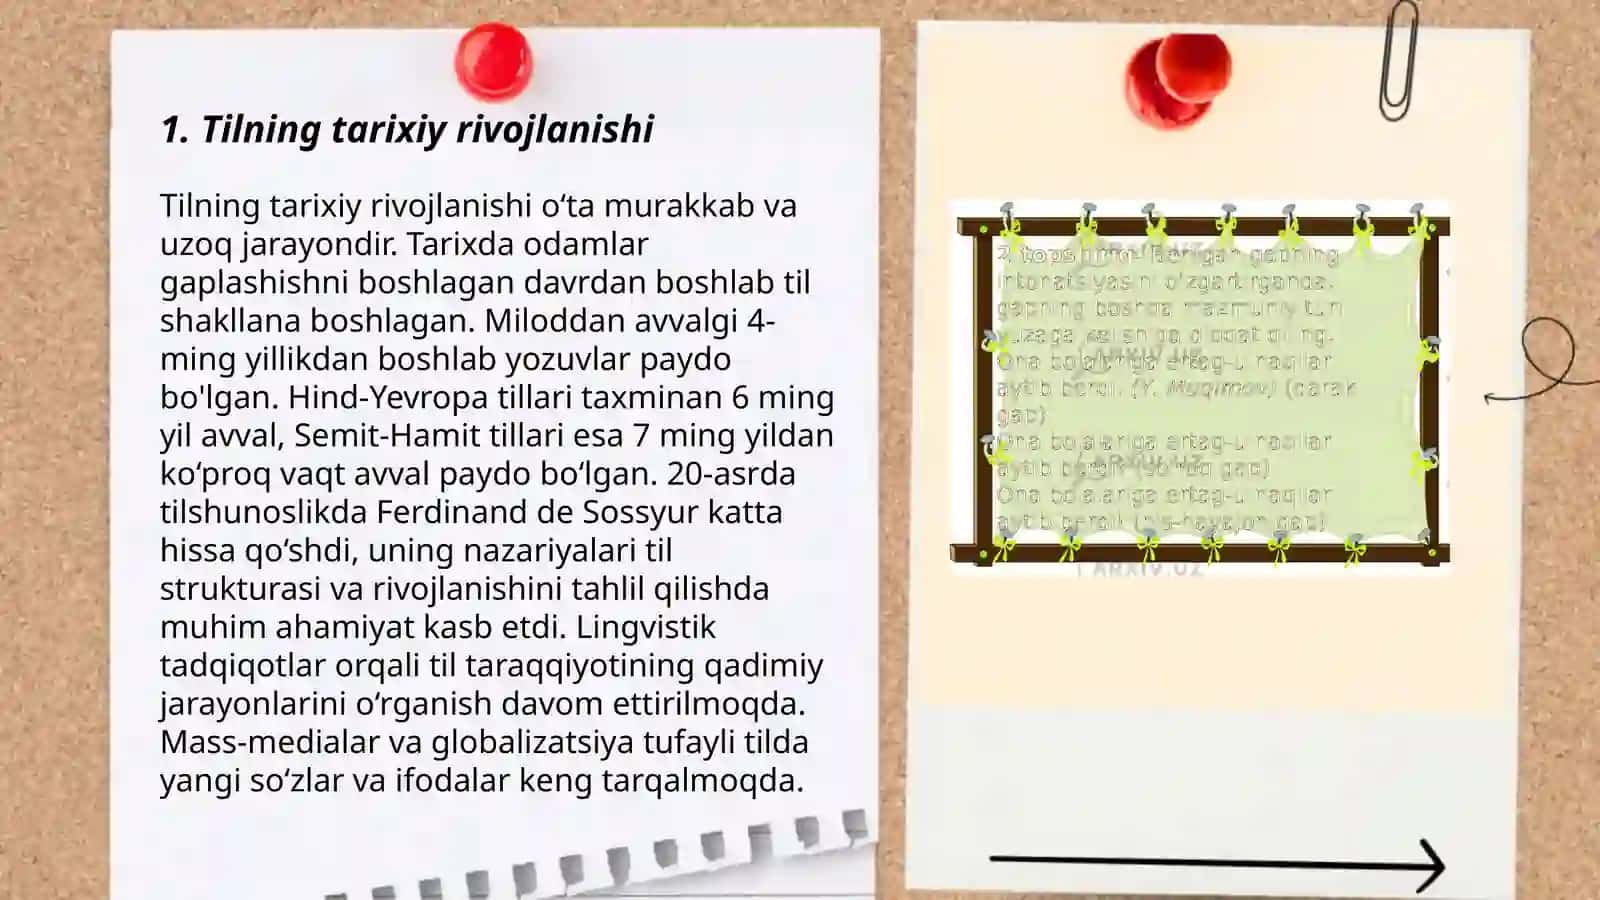 1. Tilning tarixiy rivojlanishi
Tilning tarixiy rivojlanishi o‘ta murakkab va
uzoq jarayondir. Tarixda odamlar
gaplashishni boshlagan davrdan boshlab til
shakllana boshlagan. Miloddan avvalgi 4-
ming yillikdan boshlab yozuvlar paydo
bo'lgan. Hind-Yevropa tillari taxminan 6 ming
yil avval, Semit-Hamit tillari esa 7 ming yildan
ko‘proq vaqt avval paydo bo‘lgan. 20-asrda
tilshunoslikda Ferdinand de Sossyur katta
hissa qo‘shdi, uning nazariyalari til
strukturasi va rivojlanishini tahlil qilishda
muhim ahamiyat kasb etdi. Lingvistik
tadqiqotlar orqali til taraqqiyotining qadimiy
jarayonlarini o‘rganish davom ettirilmoqda.
Mass-medialar va globalizatsiya tufayli tilda
yangi so‘zlar va ifodalar keng tarqalmoqda.
gapning
Ona ertag-u naqllar
aytib berdi. (Y. Muqimov) (darak
gap)
Ona bolalariga ertag-u naqllar
aytib gap)
Ona bolalariga ertag-u naqllar
aytib gap)
ARXIV.UZ